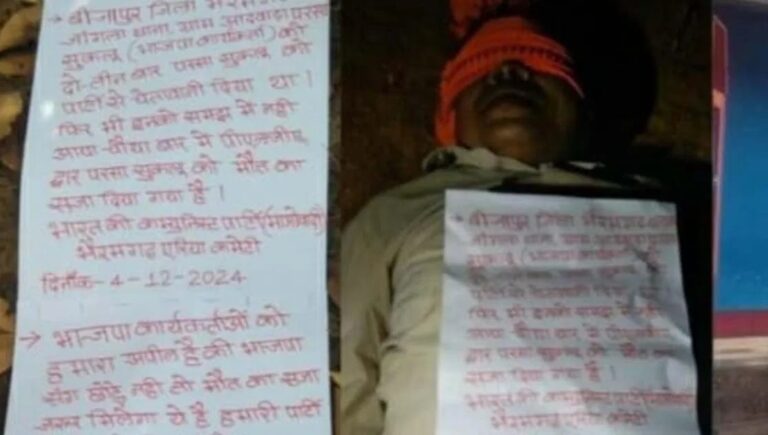 → बीजापुर जिला भैरमगढ़
जांगला थाना, ग्राम आदवाड़ा परसा
सुकलू (भाजपा कार्यकर्ता) को
दो-तीन बार परसा सुकलू को
पार्टी से चेतावनी दिया था।
फिर भी इनको समझ में नहीं
आया चौथा बार में पीएलजीए
द्वार परसा सुकलू को मौत का
सजा दिया गया है।
भारत की कम्युनिस्ट पार्टी (माओवादी)
भैरमगढ़ एरिया कमेटी
दिनांक- 4-12-2024
→ भाजपा कार्यकर्ताओं को
हमारा अपील है की भाजपा
छोड़े नहीं तो मौत का सजा
जरूर मिलेगा ये है हमारी पार्टी
→ बीजापुर जिला भैरमगढ़
जांगला थाना, ग्राम आदवाड़ा परसा
सुकलू (भाजपा कार्यकर्ता) को
दो-तीन बार परसा सुकलू को
पार्टी से चेतावनी दिया था।
फिर भी इनको समझ में नहीं
आया चौथा बार में पीएलजीए
द्वार परसा सुकलू को मौत का
सजा दिया गया है।
भारत की कम्युनिस्ट पार्टी (माओवादी)
भैरमगढ़ एरिया कमेटी